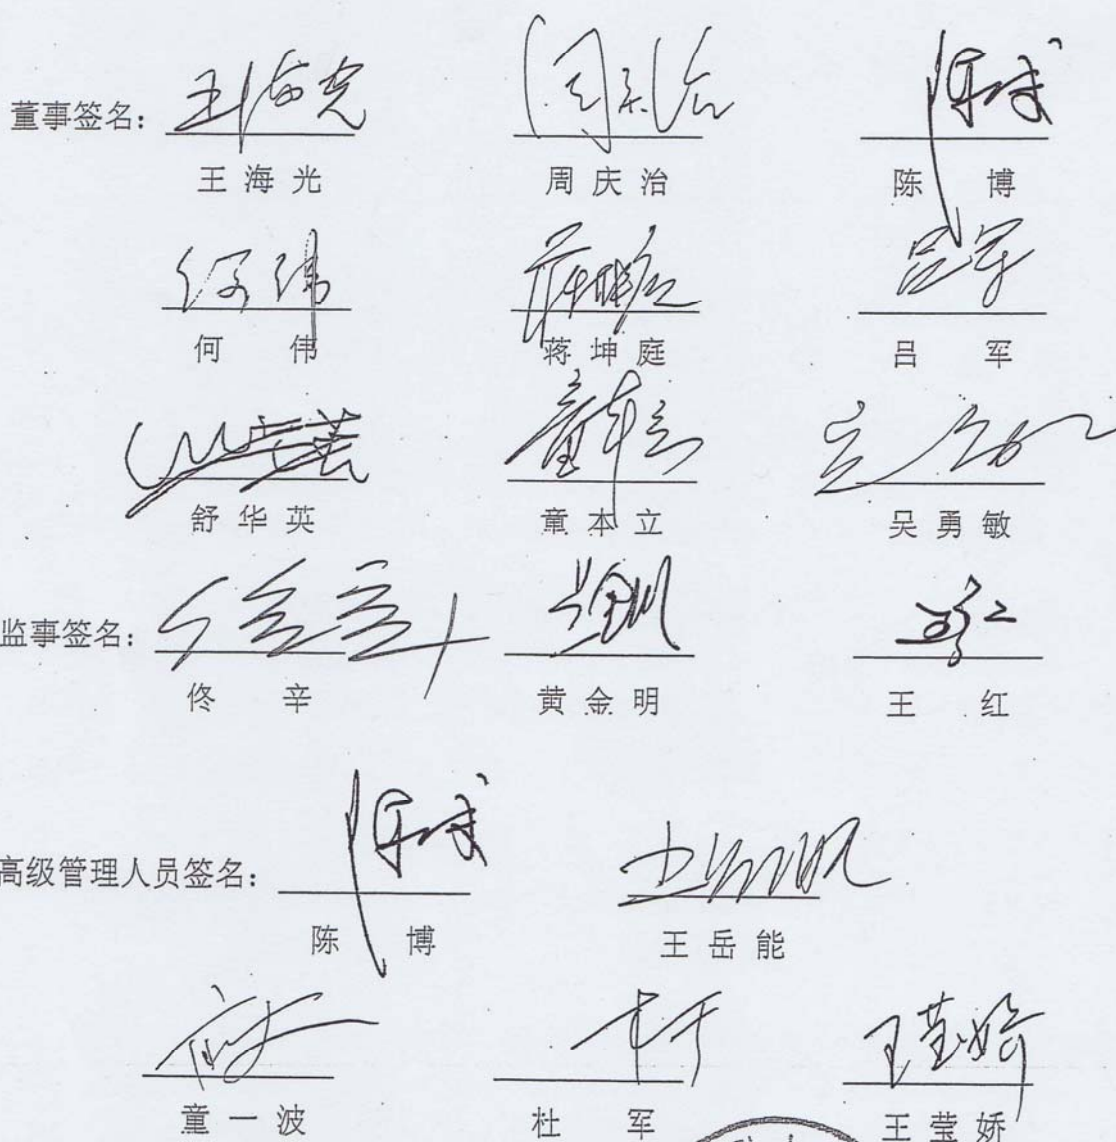 董事签名：
王海光 周庆治 陈博
何伟 蒋坤庭 吕军
舒华英 童本立 吴勇敏
监事签名：
佟辛 黄金明 王红
高级管理人员签名：
陈博 王岳能
童一波 杜军 王莹娇